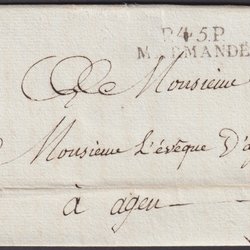 P.45.P.
MARMANDE
Monsieur
Monsieur L'évêque D'a
à agen